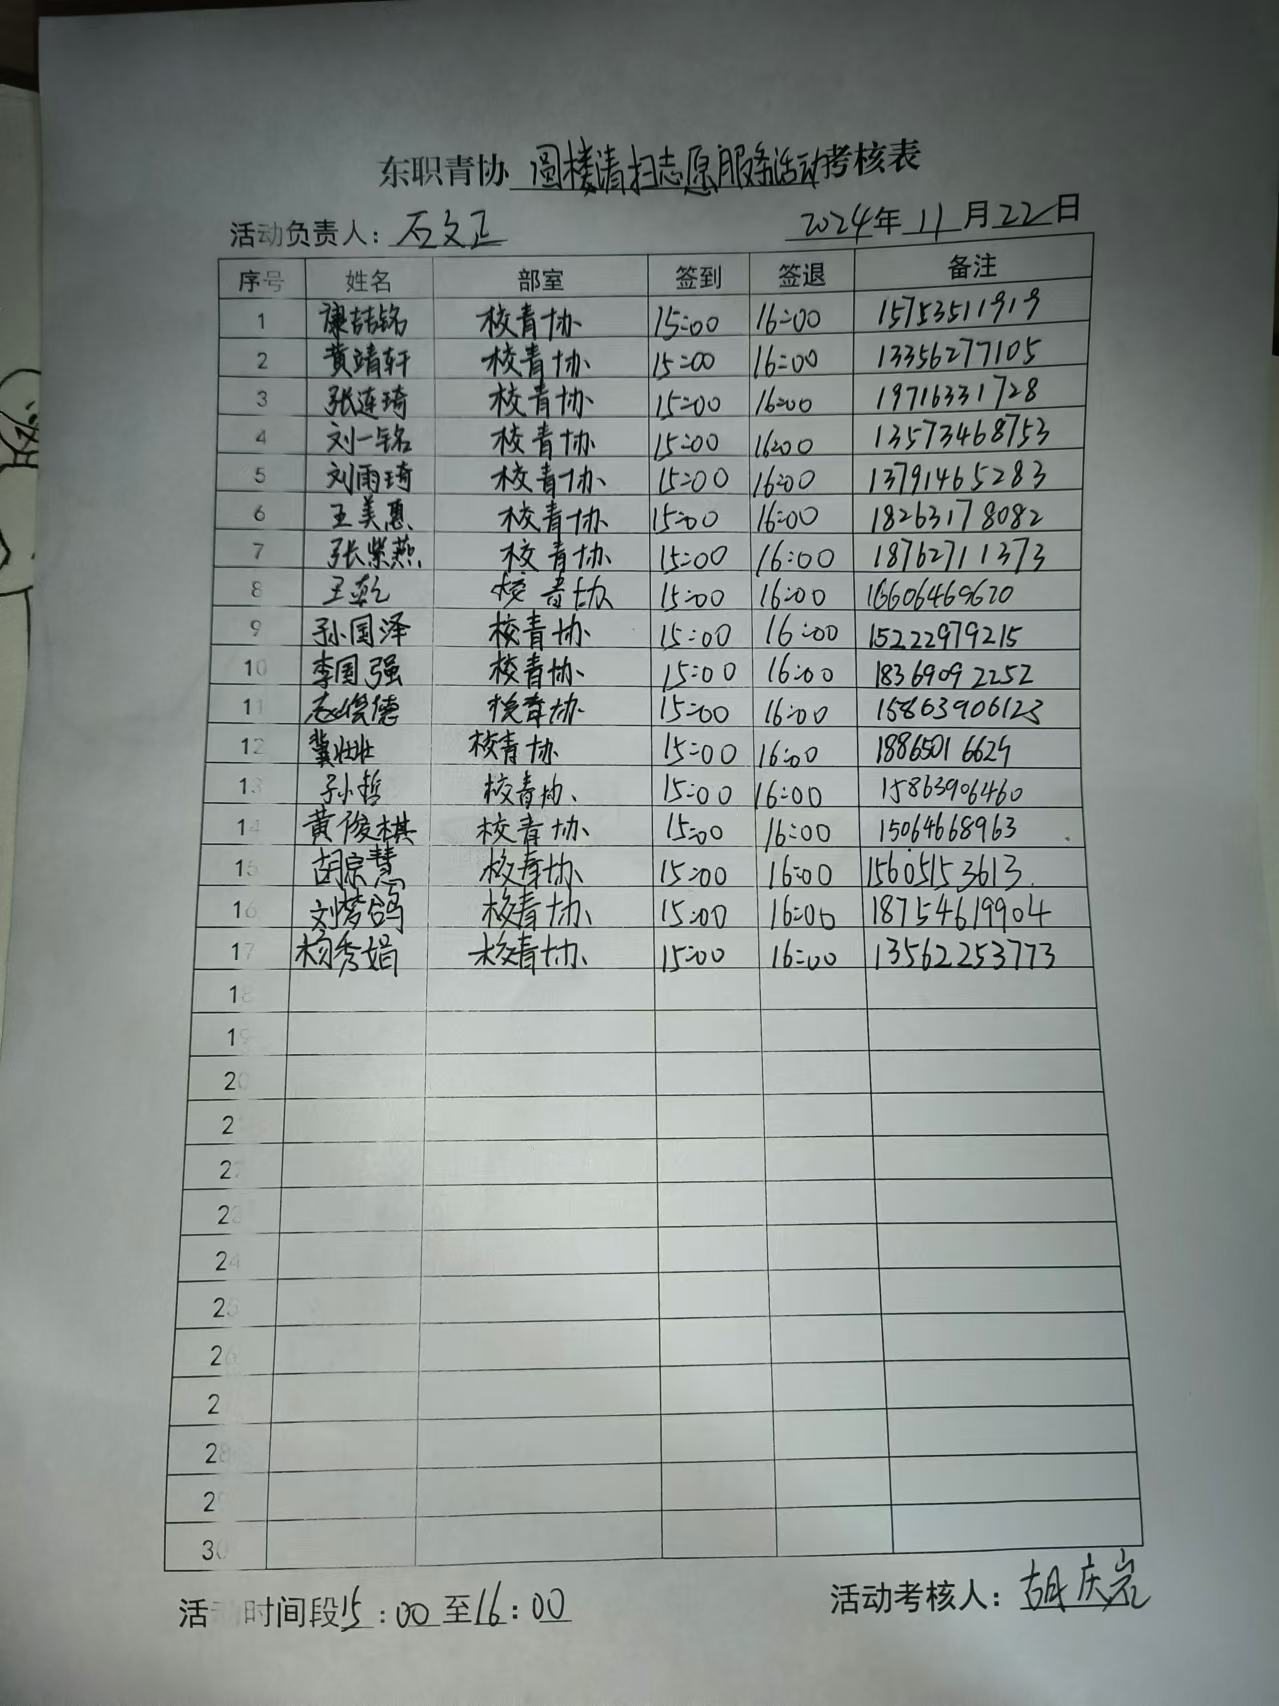 东职青协 圆楼清扫志愿服务活动考核表
活动负责人：石文正 2024年11月22日
序号 姓名 部室 签到 签退 备注
1 校青协 15:00 16:00 15753511919
2 黄靖轩 校青协 15:00 16:00 13356277105
3 张连琦 校青协 15:00 16:00 19716331728
4 刘一铭 校青协 15:00 16:00 13573468753
5 刘雨琦 校青协 15:00 16:00 13791465283
6 王美惠 校青协 15:00 16:00 18263178082
7 张紫燕 校青协 15:00 16:00 18762711373
8 王乾 校青协 15:00 16:00 16606469620
9 孙国泽 校青协 15:00 16:00 15222979215
10 李国强 校青协 15:00 16:00 18369092252
11 俊德 校青协 15:00 16:00 15863906123
12 冀壮壮 校青协 15:00 16:00 18865016629
13 孙哲 校青协 15:00 16:00 15863906460
14 黄俊棋 校青协 15:00 16:00 15064668963
15 胡宗慧 校青协 15:00 16:00 15605153613
16 刘梦鸽 校青协 15:00 16:00 18754619904
17 杨秀娟 校青协 15:00 16:00 13562253773
18
19
20
2
22
23
24
25
26
2
28
2
30
活动时间段15:00至16:00 活动考核人：胡庆岚